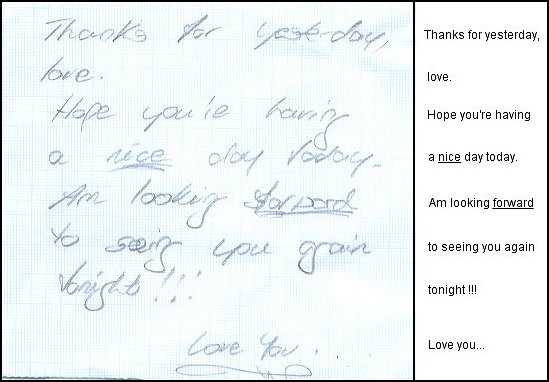 Thanks for yesterday,
love.
Hope you're having
a nice day today.
Am looking forward
to seeing you again
tonight!!!
Love You.
Thanks for yesterday,
love.
Hope you're having
a nice day today.
Am looking forward
to seeing you again
tonight !!!
Love you...